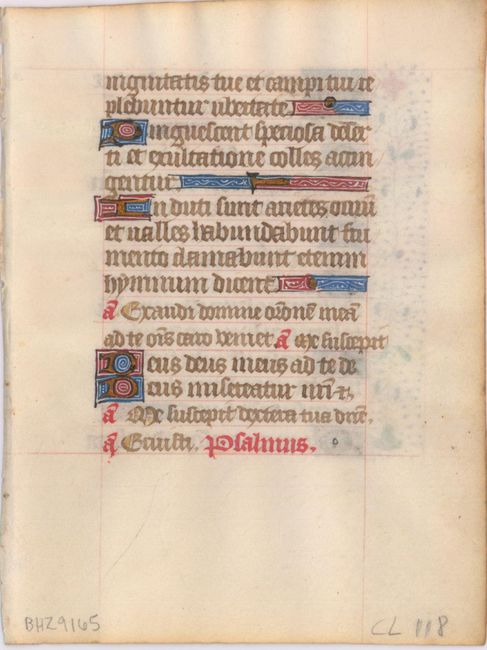 nignitatis tue et campi tui re
plebuntur ubertate
Pinguescent speciosa deser
ti et exultatione colles accin
gentur
Induti sunt arietes ouiu
et ualles habundabunt fru
mento clamabunt etenim
hymnum dicent
a Exaudi domine orone mea
ad te ois caro veniet a Me suscepit
Deus deus meus ad te de
Deus misereatur nri &
a Me suscepit dextera tua dne.
a Psalmus.
BHZ9165
CL 118